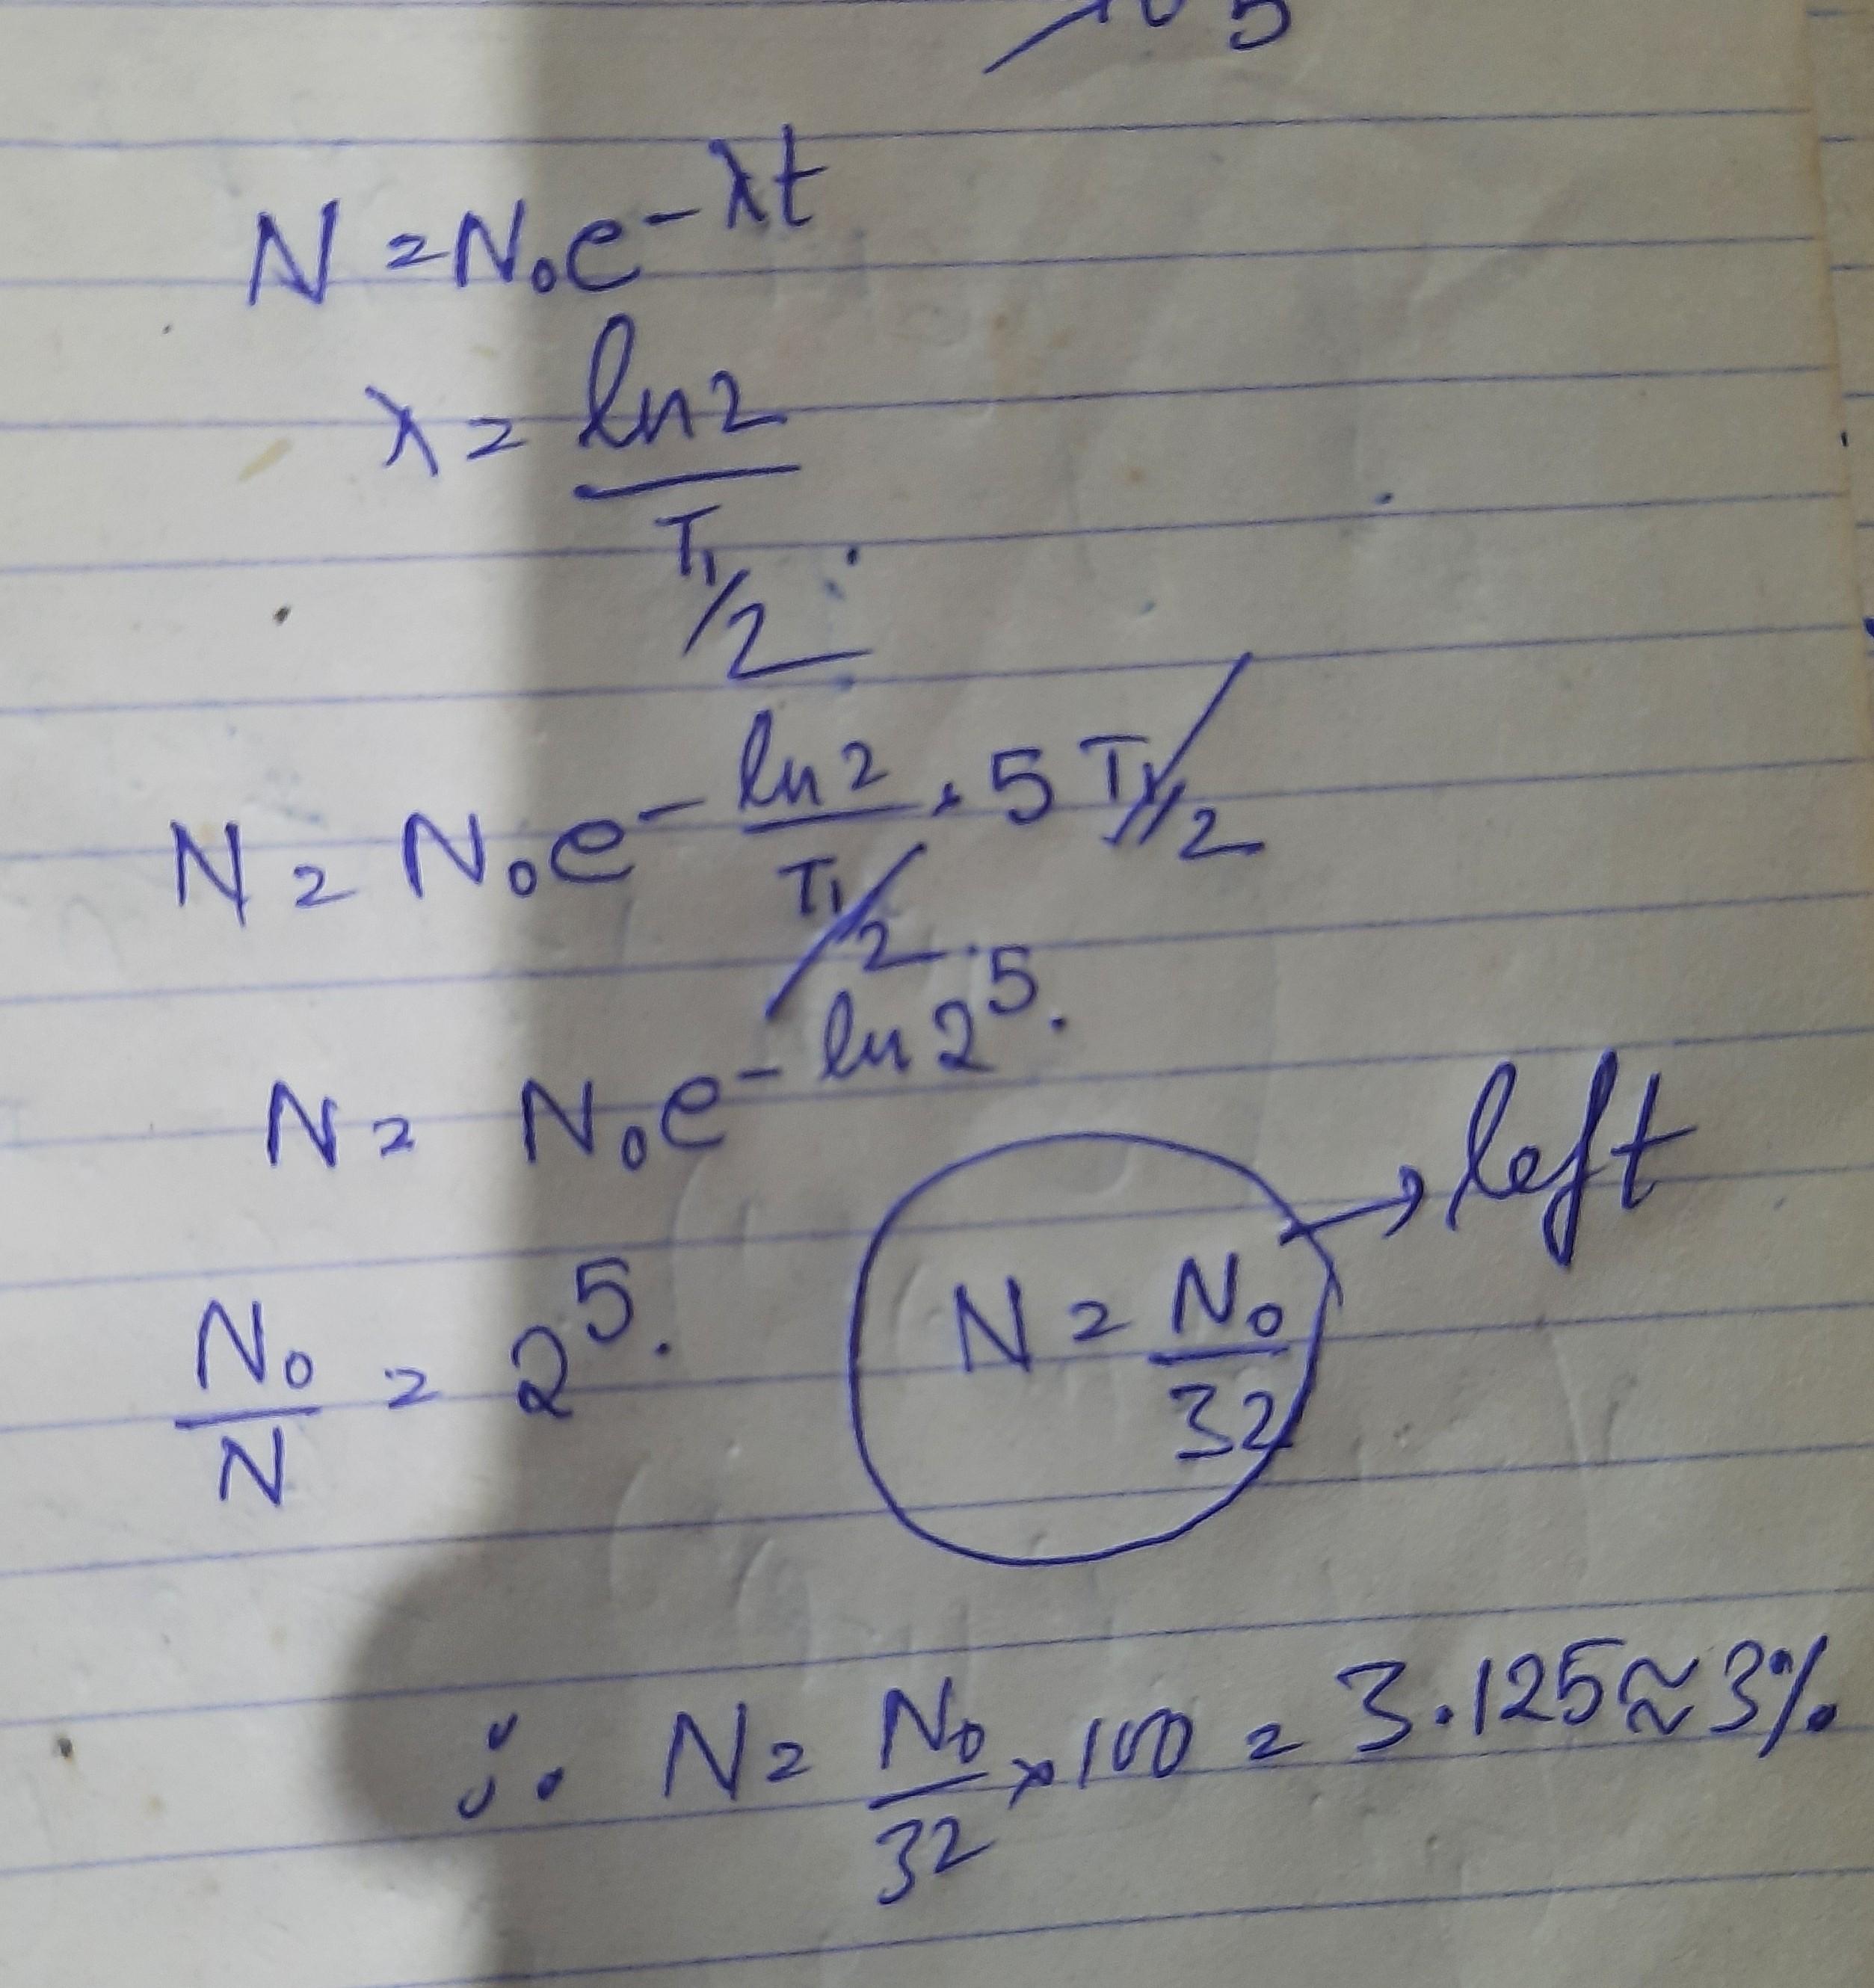 5
N = N₀e^-λt
λ = ln2 / T1/2
N = N₀e^- ln2 / T1/2 . 5 T1/2
N = N₀e^- ln2⁵.
N₀ / N = 2⁵.
N = N₀ / 32 → left
∴ N = N₀ / 32 × 100 = 3.125 ≈ 3%